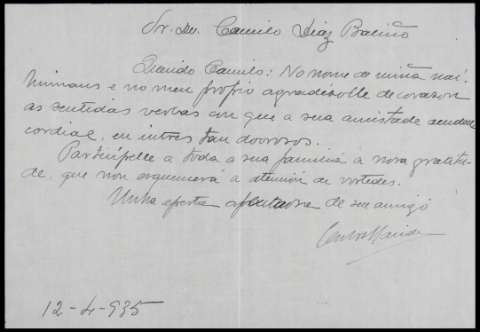 Sr. Dn. Camilo Díaz Baliño
Querido Camilo: No nome de miña nai,
irmans e no meu propio agradézolle de corazón
as sentidas verbas en que a sua amistade
cordial, en intres tan doorosos.
Partícipelle a toda a sua familia a nosa gratitu-
de, que non esquencerá a atención de vostedes.
Unha aperta de seu amigo
12-4-935